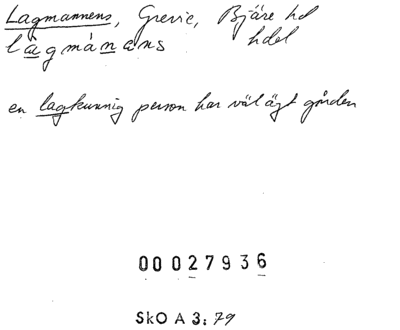 Lagmannens, Grevie, Bjäre hd
lagmánans hdel
en lagkunnig person har väl ägt gården
00027936
SkO A 3: 79